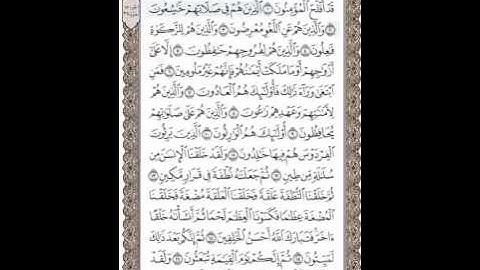 قَدْ أَفْلَحَ الْمُؤْمِنُونَ ١ الَّذِينَ هُمْ فِي صَلَاتِهِمْ خَاشِعُونَ
٢ وَالَّذِينَ هُمْ عَنِ اللَّغْوِ مُعْرِضُونَ ٣ وَالَّذِينَ هُمْ لِلزَّكَوٰةِ
فَاعِلُونَ ٤ وَالَّذِينَ هُمْ لِفُرُوجِهِمْ حَافِظُونَ ٥ إِلَّا عَلَىٰ
أَزْوَاجِهِمْ أَوْ مَا مَلَكَتْ أَيْمَانُهُمْ فَإِنَّهُمْ غَيْرُ مَلُومِينَ ٦ فَمَنِ
ابْتَغَىٰ وَرَاءَ ذَٰلِكَ فَأُولَٰئِكَ هُمُ الْعَادُونَ ٧ وَالَّذِينَ هُمْ
لِأَمَانَاتِهِمْ وَعَهْدِهِمْ رَاعُونَ ٨ وَالَّذِينَ هُمْ عَلَىٰ صَلَوَاتِهِمْ
يُحَافِظُونَ ٩ أُولَٰئِكَ هُمُ الْوَارِثُونَ ١٠ الَّذِينَ يَرِثُونَ
الْفِرْدَوْسَ هُمْ فِيهَا خَالِدُونَ ١١ وَلَقَدْ خَلَقْنَا الْإِنْسَانَ مِنْ
سُلَالَةٍ مِنْ طِينٍ ١٢ ثُمَّ جَعَلْنَاهُ نُطْفَةً فِي قَرَارٍ مَكِينٍ ١٣
ثُمَّ خَلَقْنَا النُّطْفَةَ عَلَقَةً فَخَلَقْنَا الْعَلَقَةَ مُضْغَةً فَخَلَقْنَا
الْمُضْغَةَ عِظَامًا فَكَسَوْنَا الْعِظَامَ لَحْمًا ثُمَّ أَنْشَأْنَاهُ خَلْقًا
آخَرَ فَتَبَارَكَ اللَّهُ أَحْسَنُ الْخَالِقِينَ ١٤ ثُمَّ إِنَّكُمْ بَعْدَ ذَٰلِكَ
لَمَيِّتُونَ ١٥ ثُمَّ إِنَّكُمْ يَوْمَ الْقِيَامَةِ تُبْعَثُونَ ١٦ وَلَقَدْ